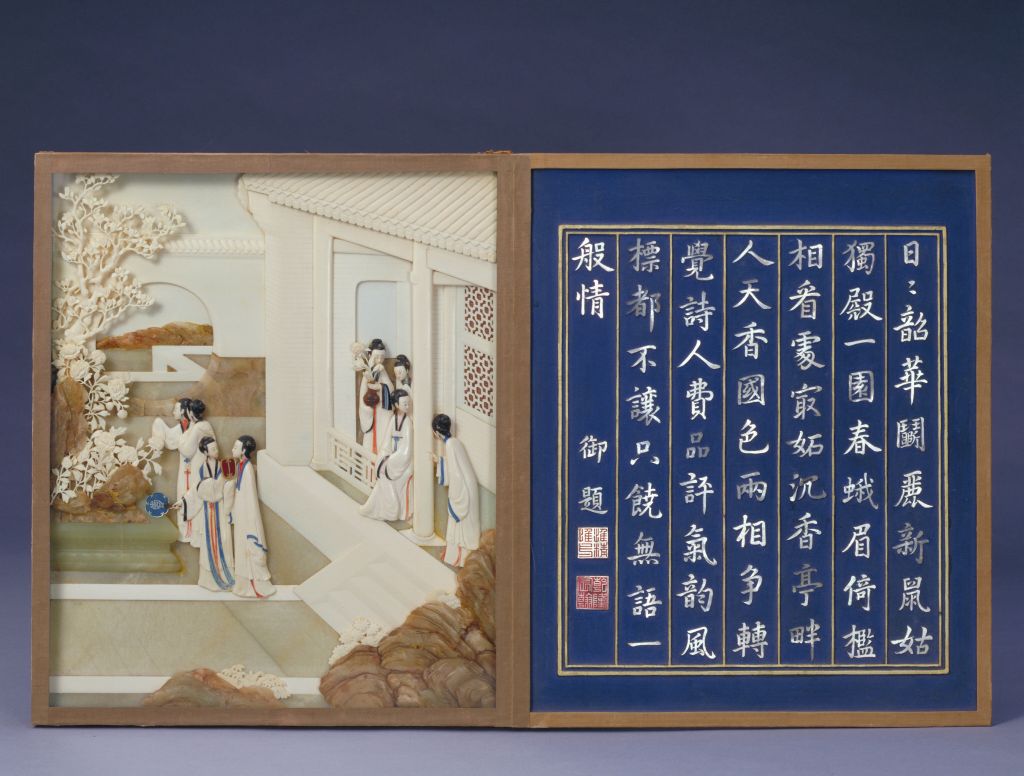 日〻韶華鬭麗新鼠姑
獨殿一園春蛾眉倚檻
相看處㝡妬沉香亭畔
人天香國色兩相争轉
覺詩人費品評氣韵風
標都不讓只饒無語一
般情
御題
乾隆宸翰